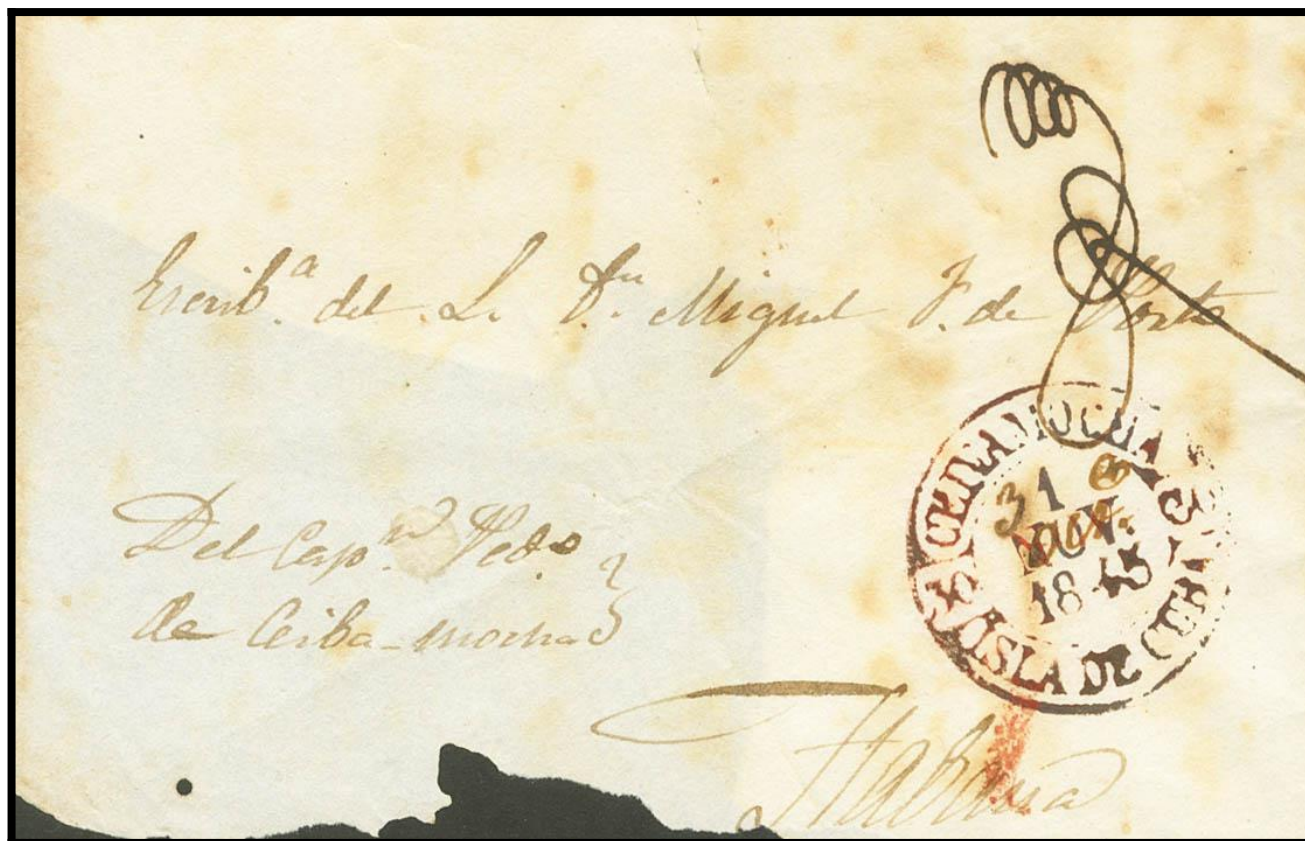 Escrib.ª del L. Dn. Miguel F. de Porto
Del Capn. Pedo.
de Ceiba-mocha
CEIBAMOCHA
31
NOV.
1845
ISLA DE CUBA
Habana